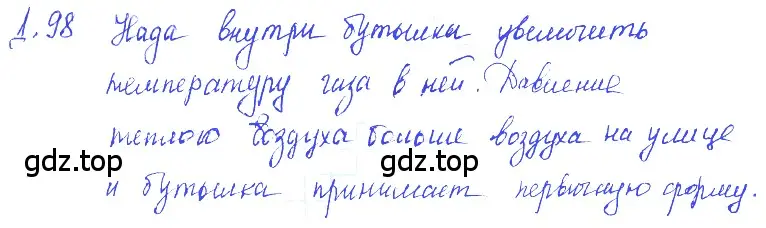 1.98 Нада внутри бутылки увеличить
температуру газа в ней. Давление
теплого воздуха больше воздуха на улице
gdz.top gdz.top
и бутылка принимает первичную форму.